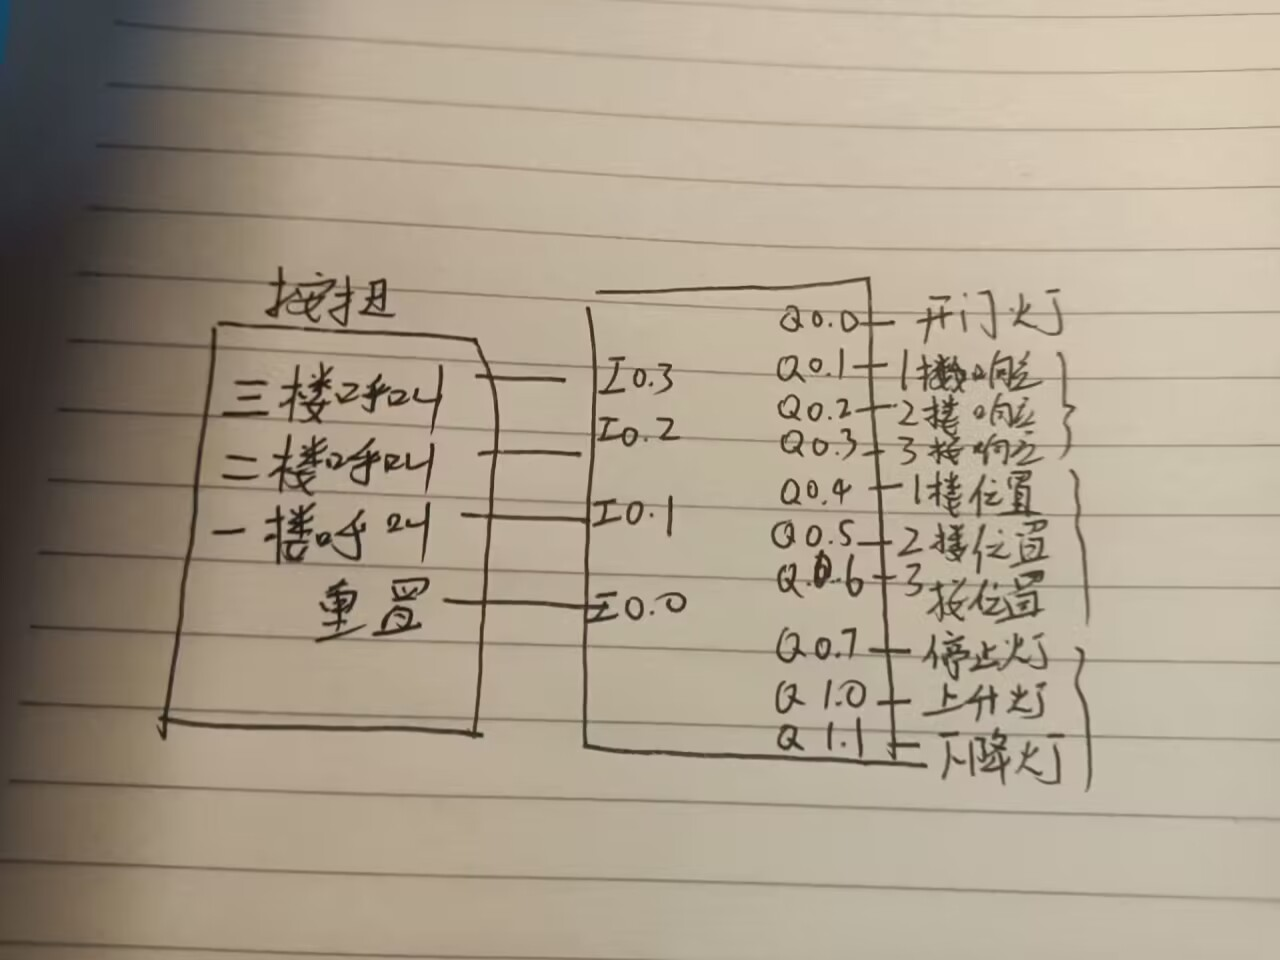 按扭
三楼呼叫
二楼呼叫
一楼呼叫
重置
I0.3
I0.2
I0.1
I0.0
Q0.0 开门灯
Q0.1 1楼响应
Q0.2 2楼响应
Q0.3 3楼响应
Q0.4 1楼位置
Q0.5 2楼位置
Q.0.6 3楼位置
Q0.7 停止灯
Q1.0 上升灯
Q1.1 下降灯